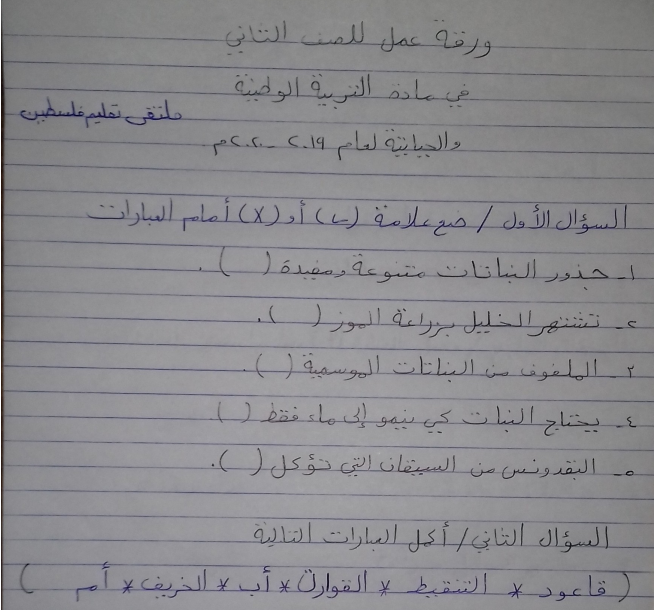 ورقة عمل للصف الثاني
في مادة التربية الوطنية
ملتقى تعليم فلسطين
والحياتية لعام ٢٠١٩ - ٢٠٢٠م
السؤال الأول / ضع علامة (✓) أو (X) أمام العبارات
١- جذور النباتات متنوعة ومفيدة ( ).
٢- تشتهر الخليل بزراعة الموز ( ).
٣- الملفوف من النباتات الموسمية ( ).
٤- يحتاج النبات كي ينمو إلى ماء فقط ( ).
٥- البقدونس من السيقان التي تؤكل ( ).
السؤال الثاني / أكمل العبارات التالية
( قاعود * التنقيط * القوارت * أب * الخريف * أم )